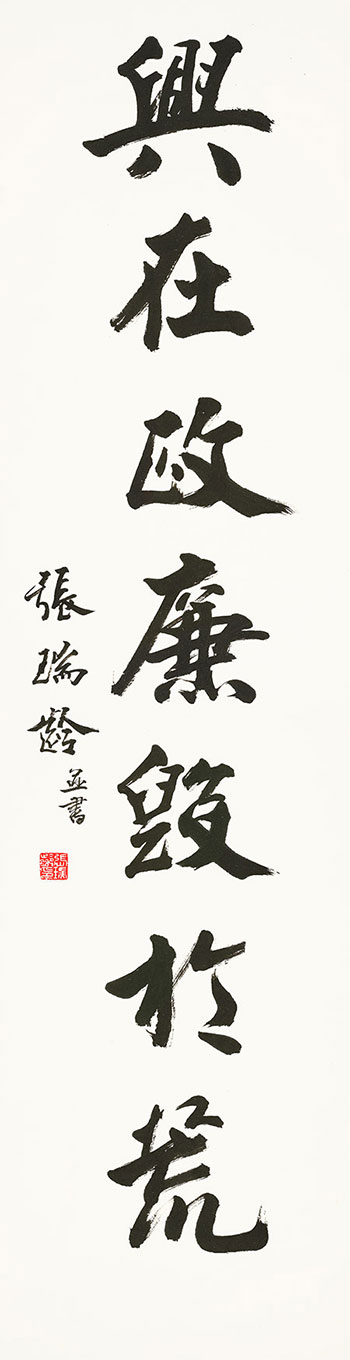 興在政廉毀於荒
張瑞齡並書